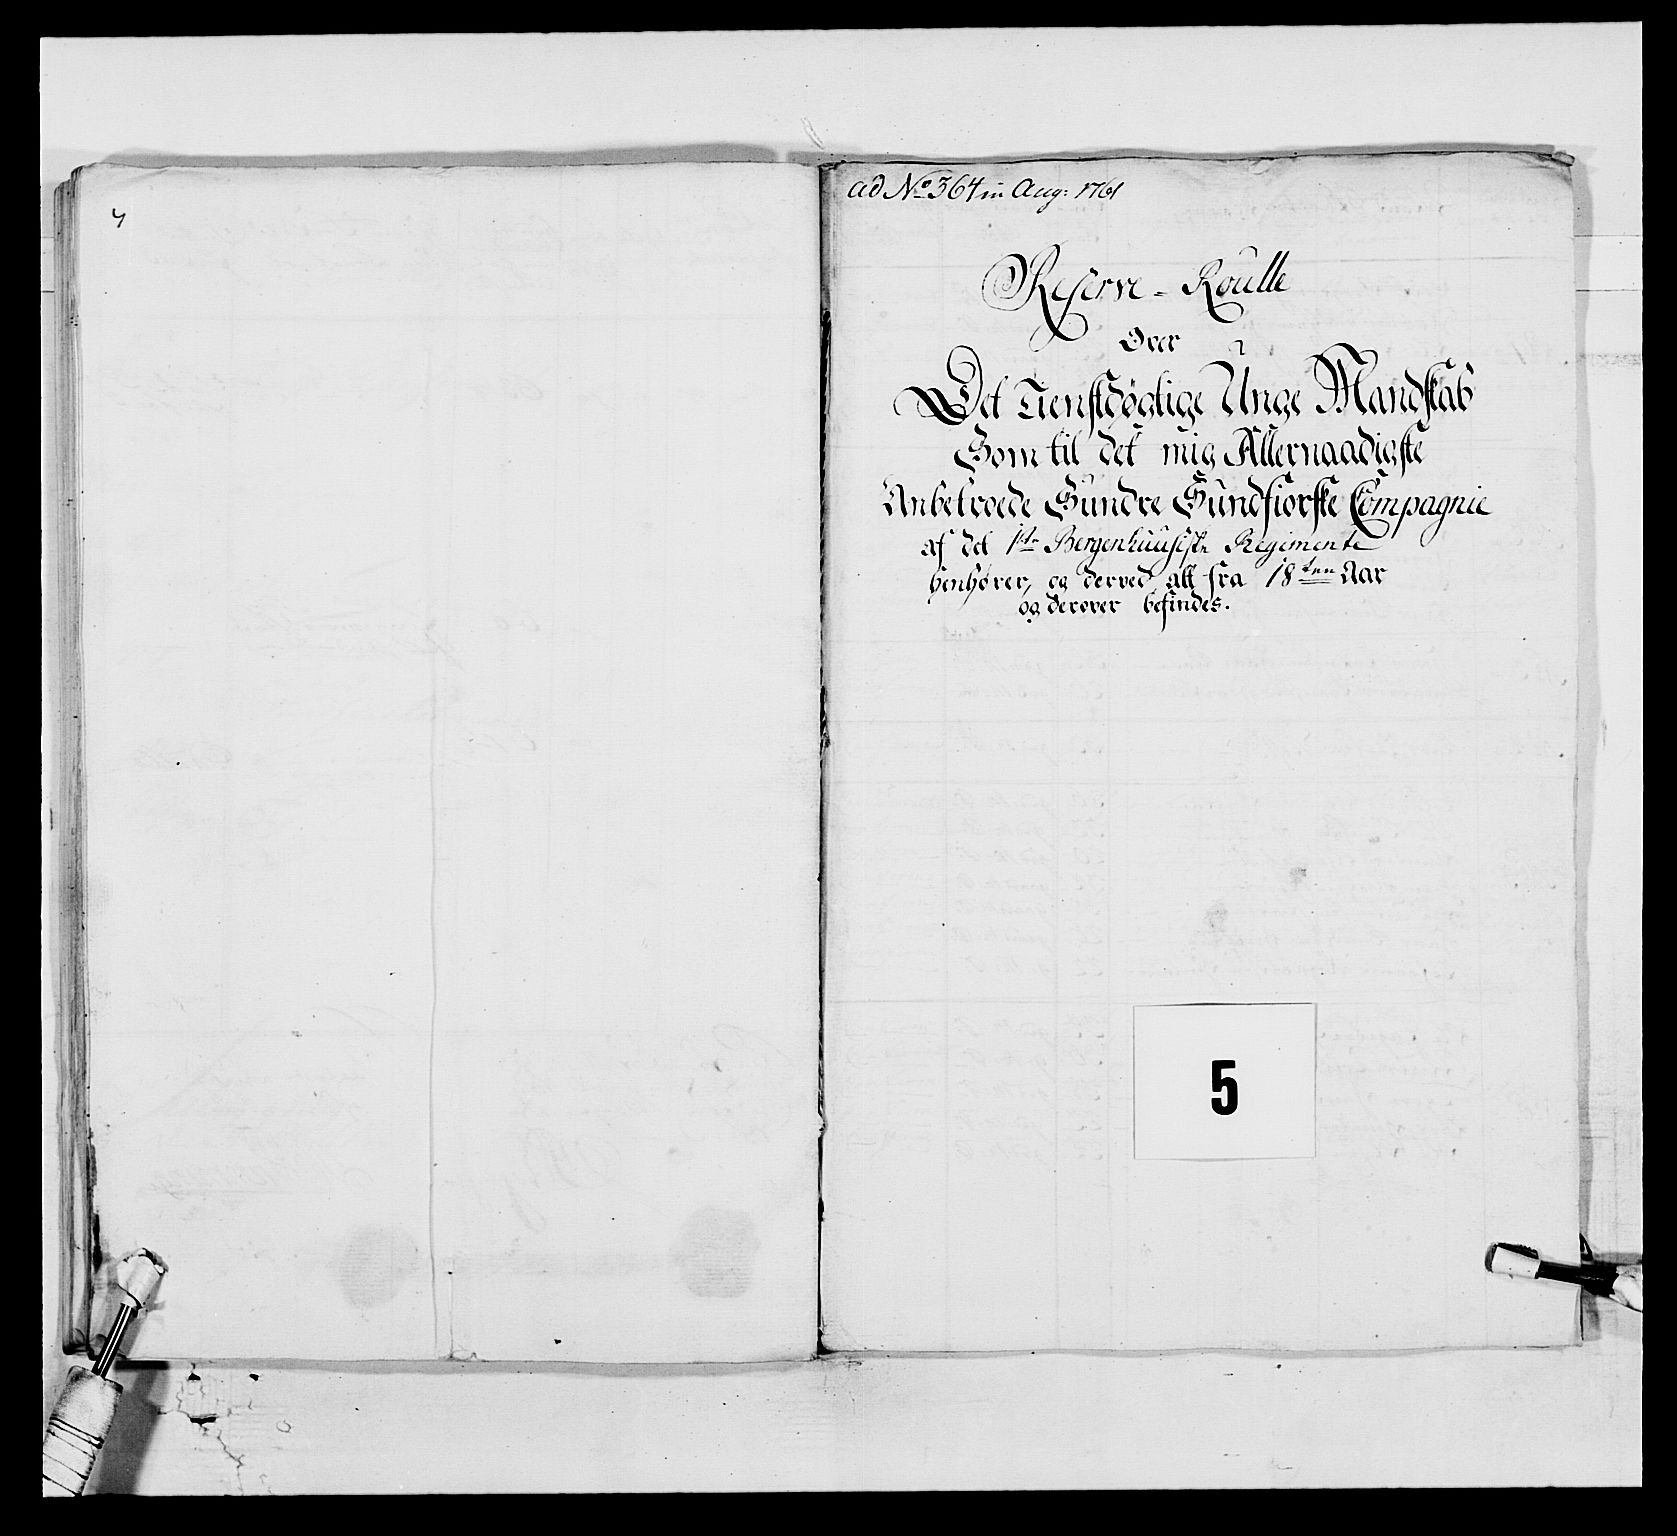 4
ad No 364 in Aug: 1761
Reserve-Roulle
Over
Det Tienstdøgtige Unge Mandskab
Som til det mig Allernaadigste
Anbetroede Sundre Sundfiorske Compagnie
af det 1ste Bergenhuusiske Regimente
henhører, og derved alt fra 18ten Aar
og derover befindes.
5